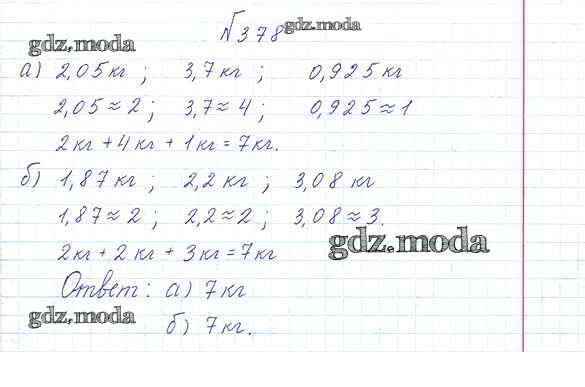 №378 gdz.moda
gdz.moda
а) 2,05 кг ; 3,7 кг ; 0,925 кг
2,05 ≈ 2 ; 3,7 ≈ 4 ; 0,925 ≈ 1
2 кг + 4 кг + 1 кг = 7 кг.
б) 1,87 кг ; 2,2 кг ; 3,08 кг
1,87 ≈ 2 ; 2,2 ≈ 2 ; 3,08 ≈ 3.
gdz.moda
2 кг + 2 кг + 3 кг = 7 кг
Ответ : а) 7 кг
gdz.moda
б) 7 кг.